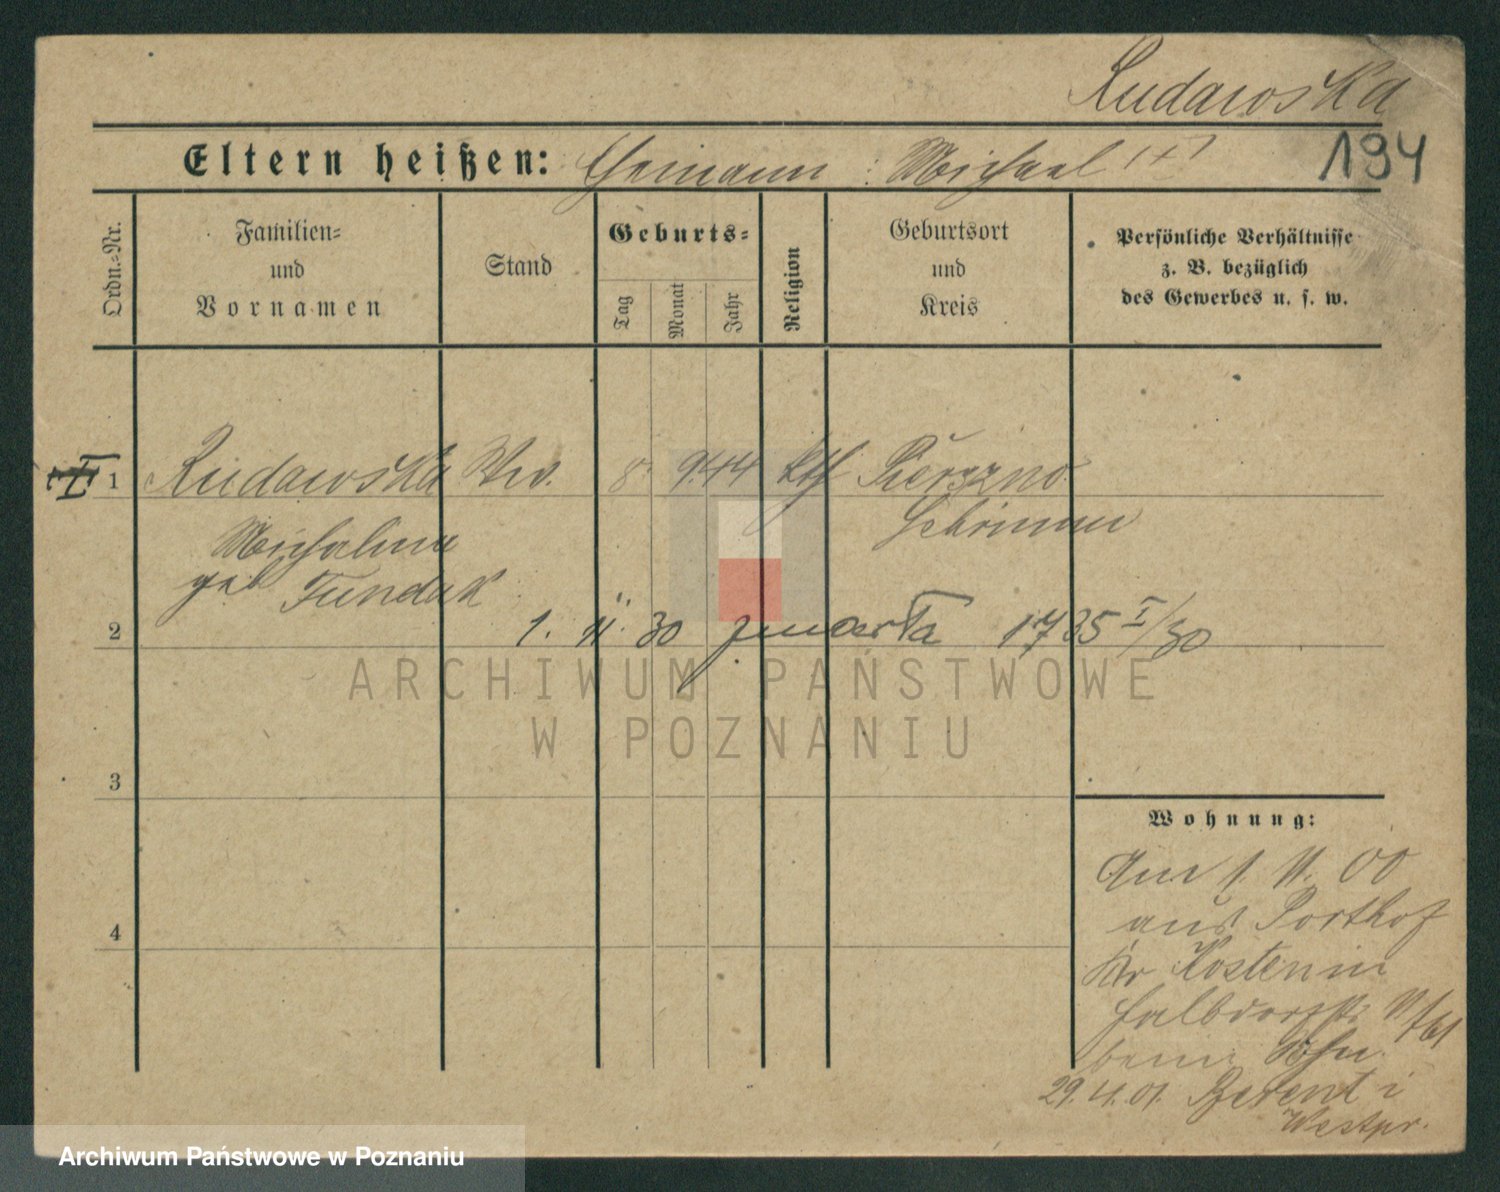 Rudawska
194
Eltern heißen: Ehemann: Michael (+)
Ordn.-Nr.
Familien-
und
Vornamen
Stand
Geburts-
Tag
Monat
Jahr
Religion
Geburtsort
und
Kreis
Persönliche Verhältnisse
z. B. bezüglich
des Gewerbes u. s. w.
I 1 Rudawska Ww. 8. 9.44 kth Pierszno
Schrimm
Michalina
geb Fundak
2 1. 11. 30 zmarła 1735 I/30
ARCHIWUM PAŃSTWOWE
W POZNANIU
3
Wohnung:
Am 1. 11. 00
aus Porthof
Kr Kosten in
Halbdorfstr.
beim Sohn
29.4.01. Berent i
Westpr.
4
Archiwum Państwowe w Poznaniu